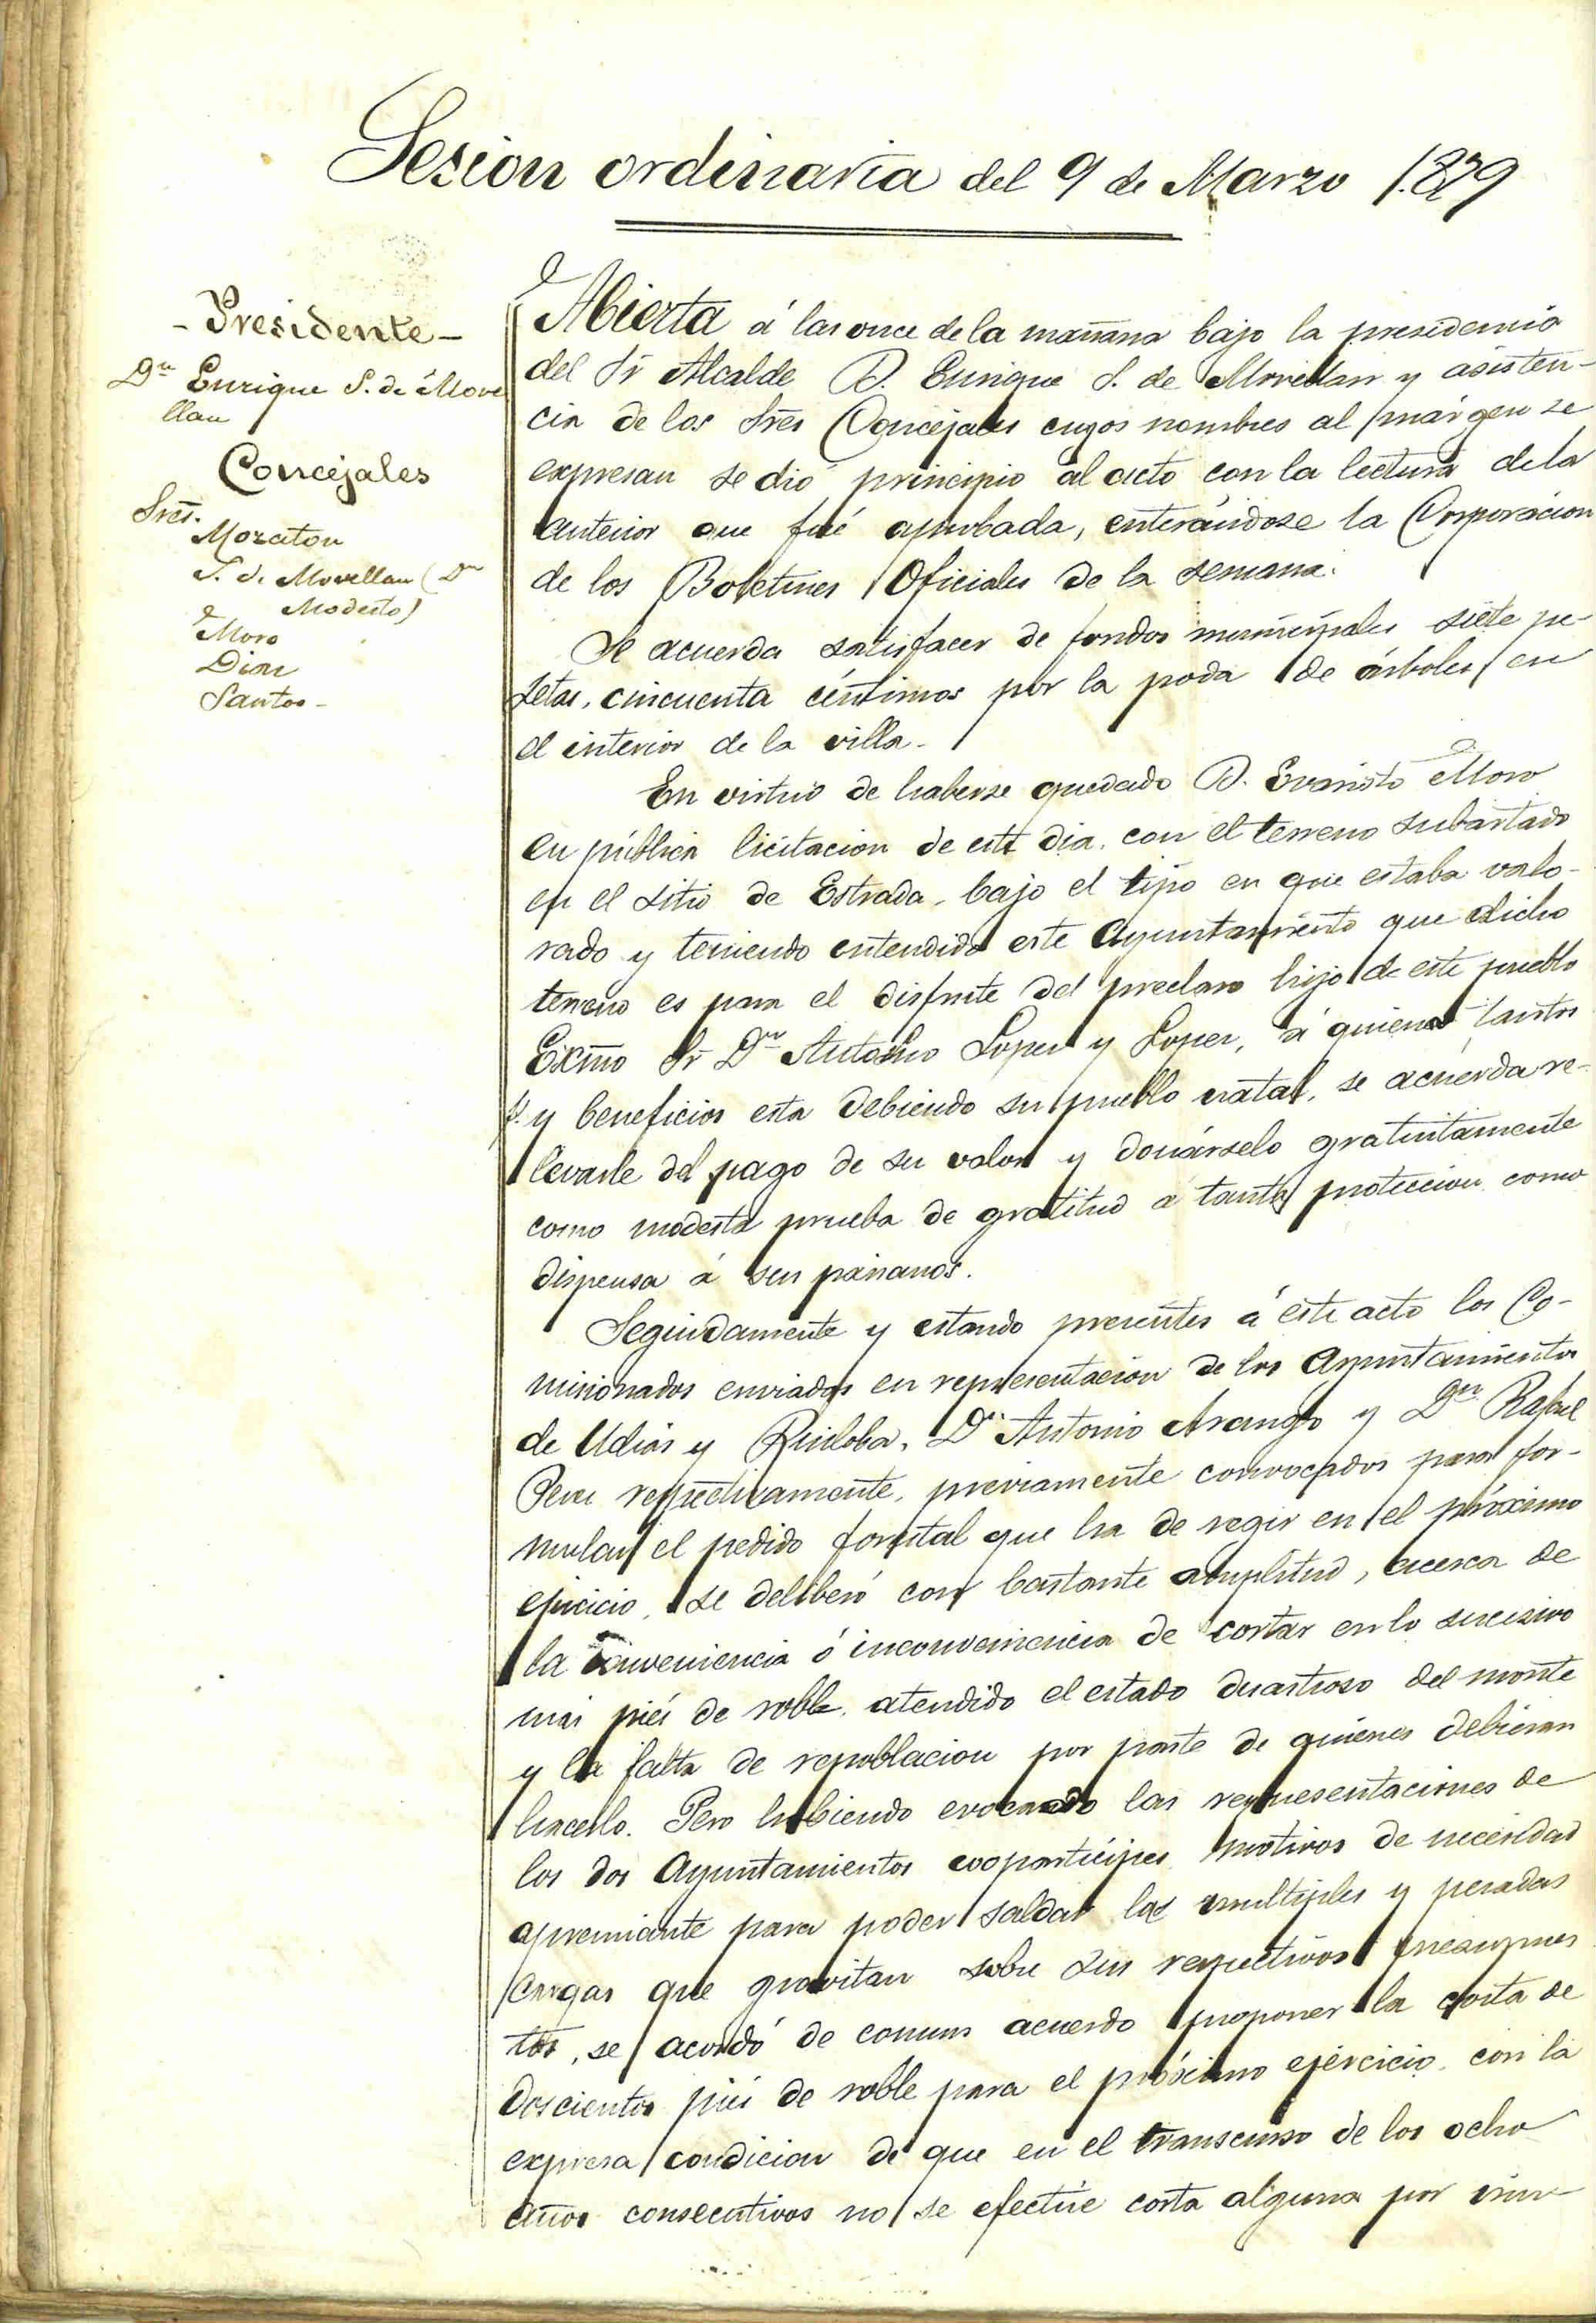 Sesion ordinaria del 9 de Marzo 1.879
- Presidente -
Dn Enrique S. de Move
llan
Concejales
Sres.
Mozaton
S. de Movellan (Dn
Modesto)
Moro
Diaz
Santos -
Abierta á las once de la mañana bajo la presidencia
del Sr Alcalde D. Enrique S. de Movellan y asisten-
cia de los Sres Concejales cuyos nombres al márgen se
expresan se dió principio al acto con la lectura de la
anterior que fué aprobada, enterándose la Corporacion
de los Boletines Oficiales de la semana.
Se acuerda satisfacer de fondos municipales siete pe-
setas, cincuenta céntimos por la poda de árboles en
el interior de la villa.
En virtud de haberse quedado D. Evaristo Moro
en pública licitacion de este dia, con el terreno subastado
en el sitio de Estrada, bajo el tipo en que estaba valo-
rado y teniendo entendido este Ayuntamiento que dicho
terreno es para el disfrute del preclaro hijo de este pueblo
Excmo Sr Dn Antonio Lopez y Lopez, á quien tantos
y beneficios esta debiendo su pueblo natal, se acuerda re-
levarle del pago de su valor y donárselo gratuitamente
como modesta prueba de gratitud á tanta proteccion como
dispensa á sus paisanos.
Seguidamente y estando presentes á este acto los Co-
misionados enviados en representacion de los Ayuntamientos
de Udias y Ruiloba, Dn Antonio Arango y Dn Rafael
respectivamente, previamente convocados para for-
mular el pedido forestal que ha de regir en el próximo
ejercicio, se deliberó con bastante amplitud, acerca de
la conveniencia ó inconveniencia de cortar en lo sucesivo
mas piés de roble, atendido el estado desastroso del monte
y la falta de repoblacion por parte de quienes debieran
hacerlo. Pero habiendo evocado las representaciones de
los dos Ayuntamientos copartícipes motivos de necesidad
apremiante para poder saldar las multiples y pesadas
cargas que gravitan sobre sus respectivos presupues
tos, se acordó de comun acuerdo proponer la corta de
doscientos piés de roble para el próximo ejercicio, con la
expresa condicion de que en el transcurso de los ocho
años consecutivos no se efectúe corta alguna por